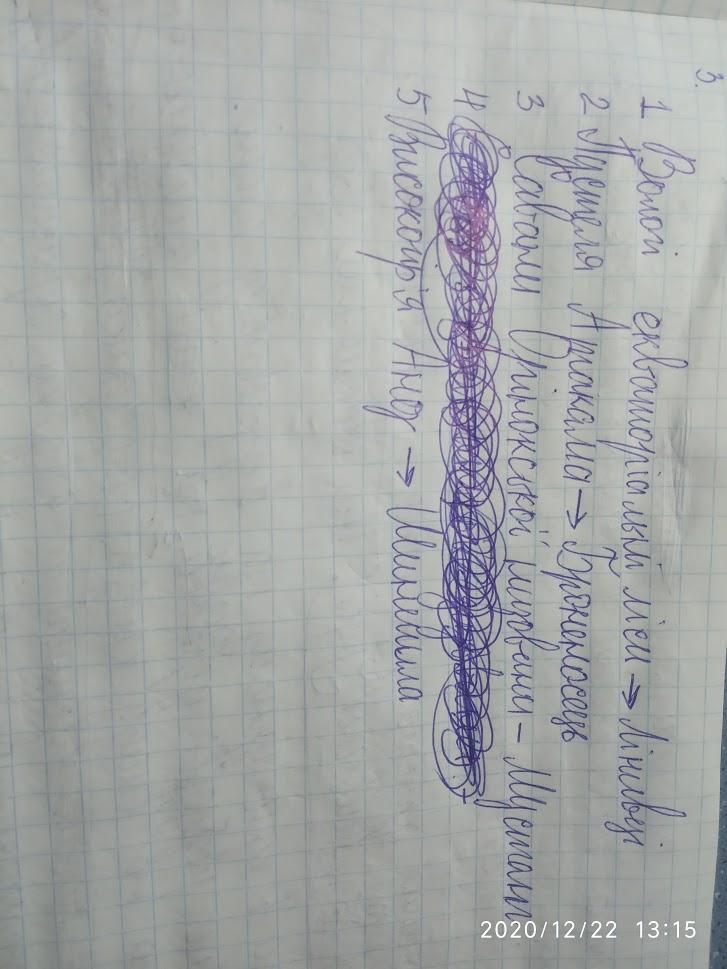 3.
1 Вологі екваторіальні ліси → Лінивці
2 Пустеля Атакама → Броненосець
3 Савани Орінокської рівнини - Мустанг
4
5 Високогір'я Анд → Шиншила
2020/12/22 13:15